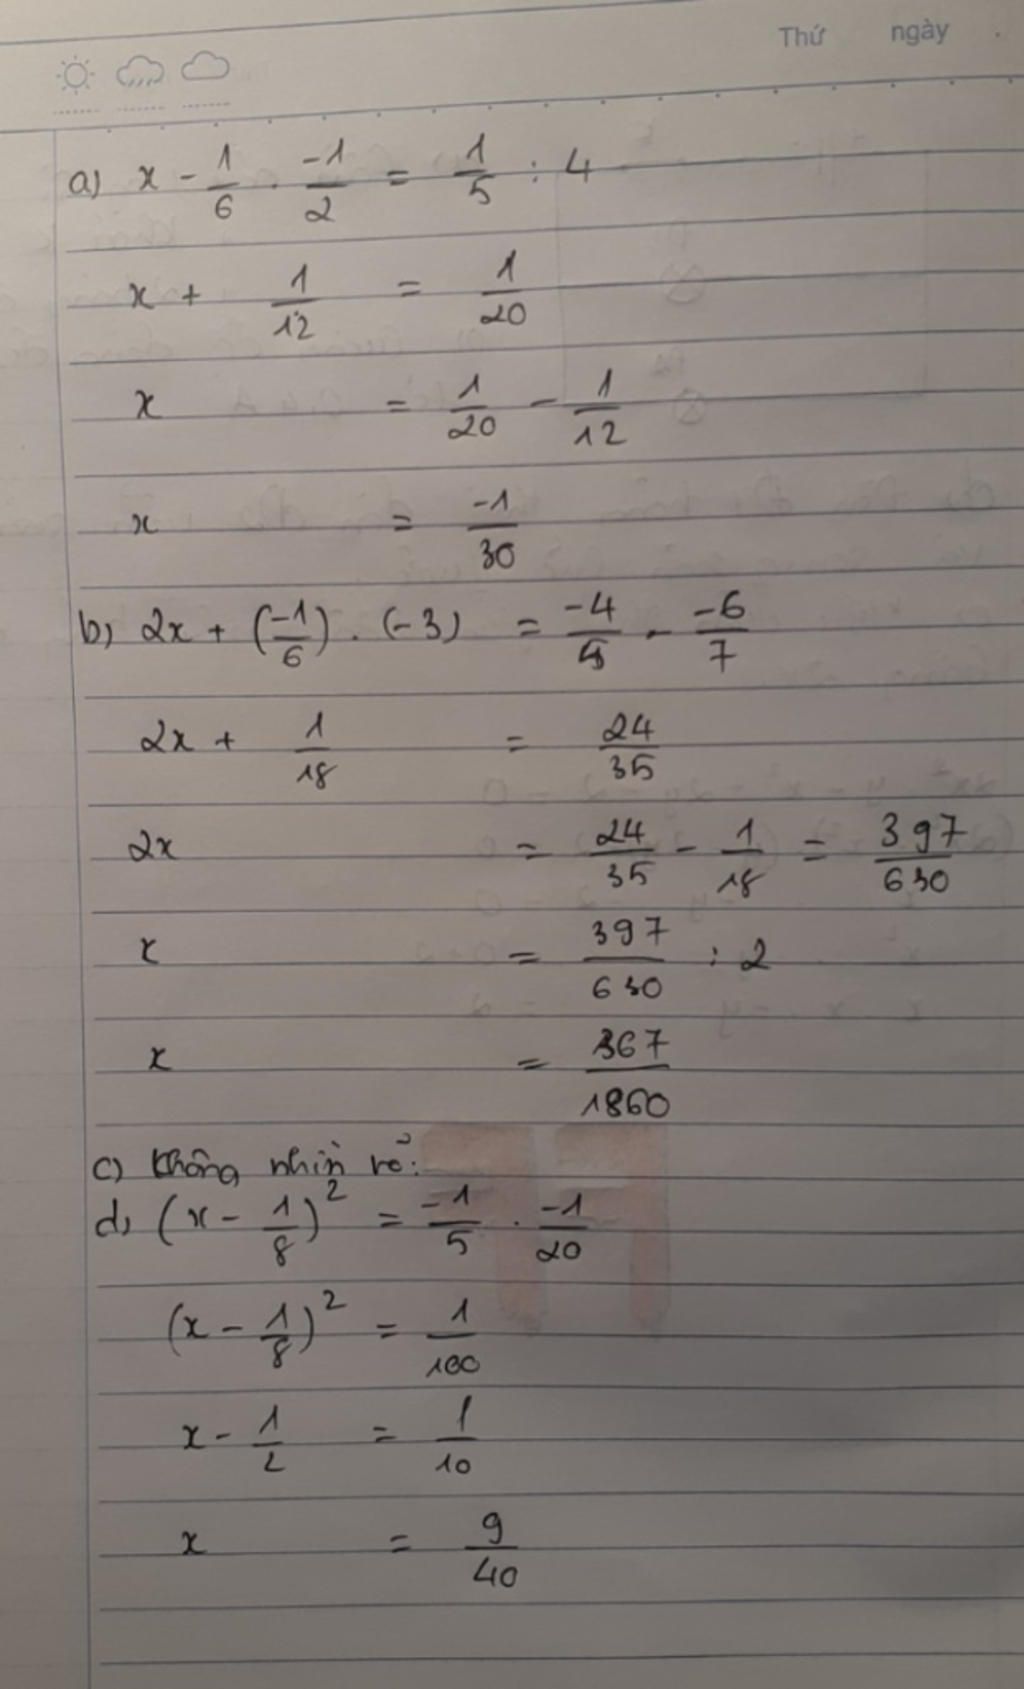 Thứ ngày
a) x - 1/6 . -1/2 = 1/5 : 4
x + 1/12 = 1/20
x = 1/20 - 1/12
x = -1/30
b) 2x + (-1/6) . (-3) = -4/5 . -6/7
2x + 1/18 = 24/35
2x = 24/35 - 1/18 = 397/630
x = 397/630 : 2
x = 367/1860
c) Không nhìn rõ:
d) (x - 1/8)² = -1/5 . -1/20
(x - 1/8)² = 1/100
x - 1/2 = 1/10
x = 9/40